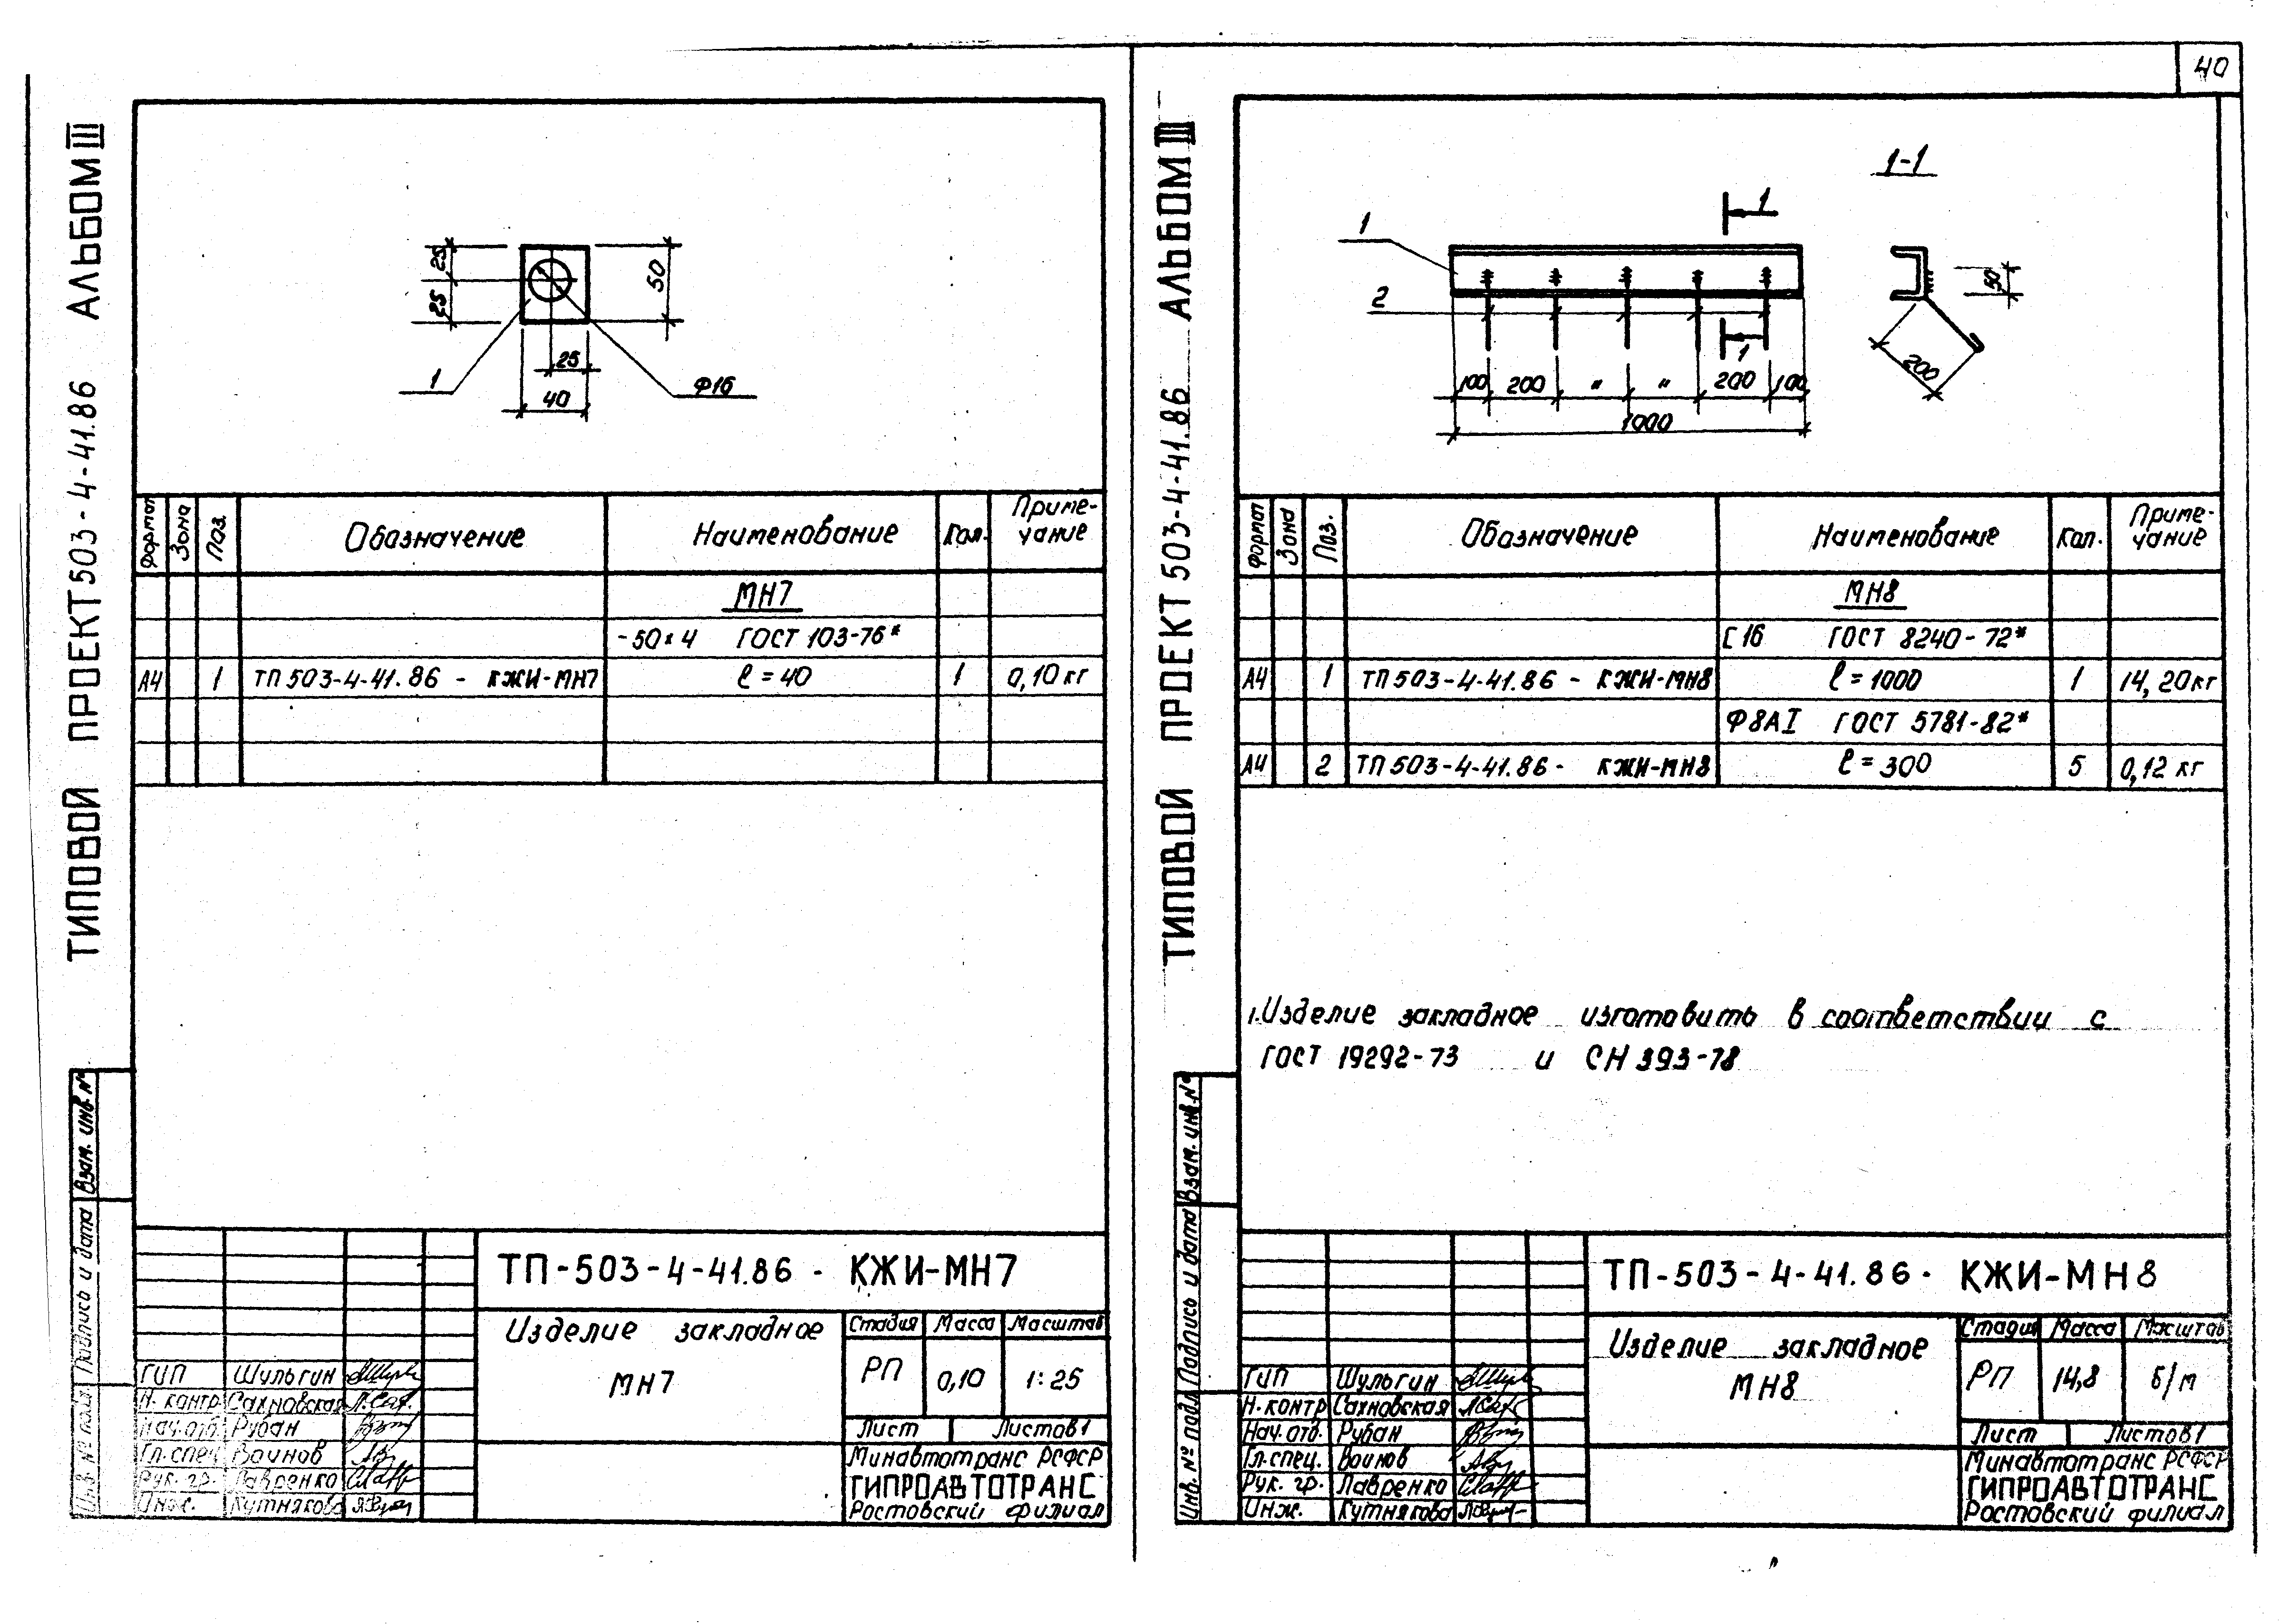 40
ТИПОВОЙ ПРОЕКТ 503-4-41.86 АЛЬБОМ III
25
25
50
25
40
1
Ф16
Формат Зона Поз. Обозначение Наименование Кол. Приме-
чание
МН7
-50×4 ГОСТ 103-76*
А4 1 ТП 503-4-41.86 - КЖИ-МН7 ℓ=40 1 0,10кг
Взам. инв. №
Подпись и дата
Инв. № подл.
ТП-503-4-41.86 - КЖИ-МН7
Изделие закладное
МН7
Стадия Масса Масштаб
РП 0,10 1:25
Лист Листов 1
Минавтотранс РСФСР
ГИПРОАВТОТРАНС
Ростовский филиал
ГИП Шульгин
Н. контр Сахновская
Нач. отд. Рубан
Гл. спец Воинов
Рук. гр. Лавренко
Инж. Кутнякова
ТИПОВОЙ ПРОЕКТ 503-4-41.86 АЛЬБОМ III
1-1
1
1
2
1
50
200
100 200 " " 200 100
1000
Формат Зона Поз. Обозначение Наименование Кол. Приме-
чание
МН8
[16 ГОСТ 8240-72*
А4 1 ТП 503-4-41.86 - КЖИ-МН8 ℓ=1000 1 14,20кг
Ф8АI ГОСТ 5781-82*
А4 2 ТП 503-4-41.86 - КЖИ-МН8 ℓ=300 5 0,12 кг
1. Изделие закладное изготовить в соответствии с
ГОСТ 19292-73 и СН 393-78
Взам. инв. №
Подпись и дата
Инв. № подл
ТП-503-4-41.86 - КЖИ-МН8
Изделие закладное
МН8
Стадия Масса Масштаб
РП 14,8 б/м
Лист Листов 1
Минавтотранс РСФСР
ГИПРОАВТОТРАНС
Ростовский филиал
ГИП Шульгин
Н. контр Сахновская
Нач. отд. Рубан
Гл. спец. Воинов
Рук. гр. Лавренко
Инж. Кутнякова